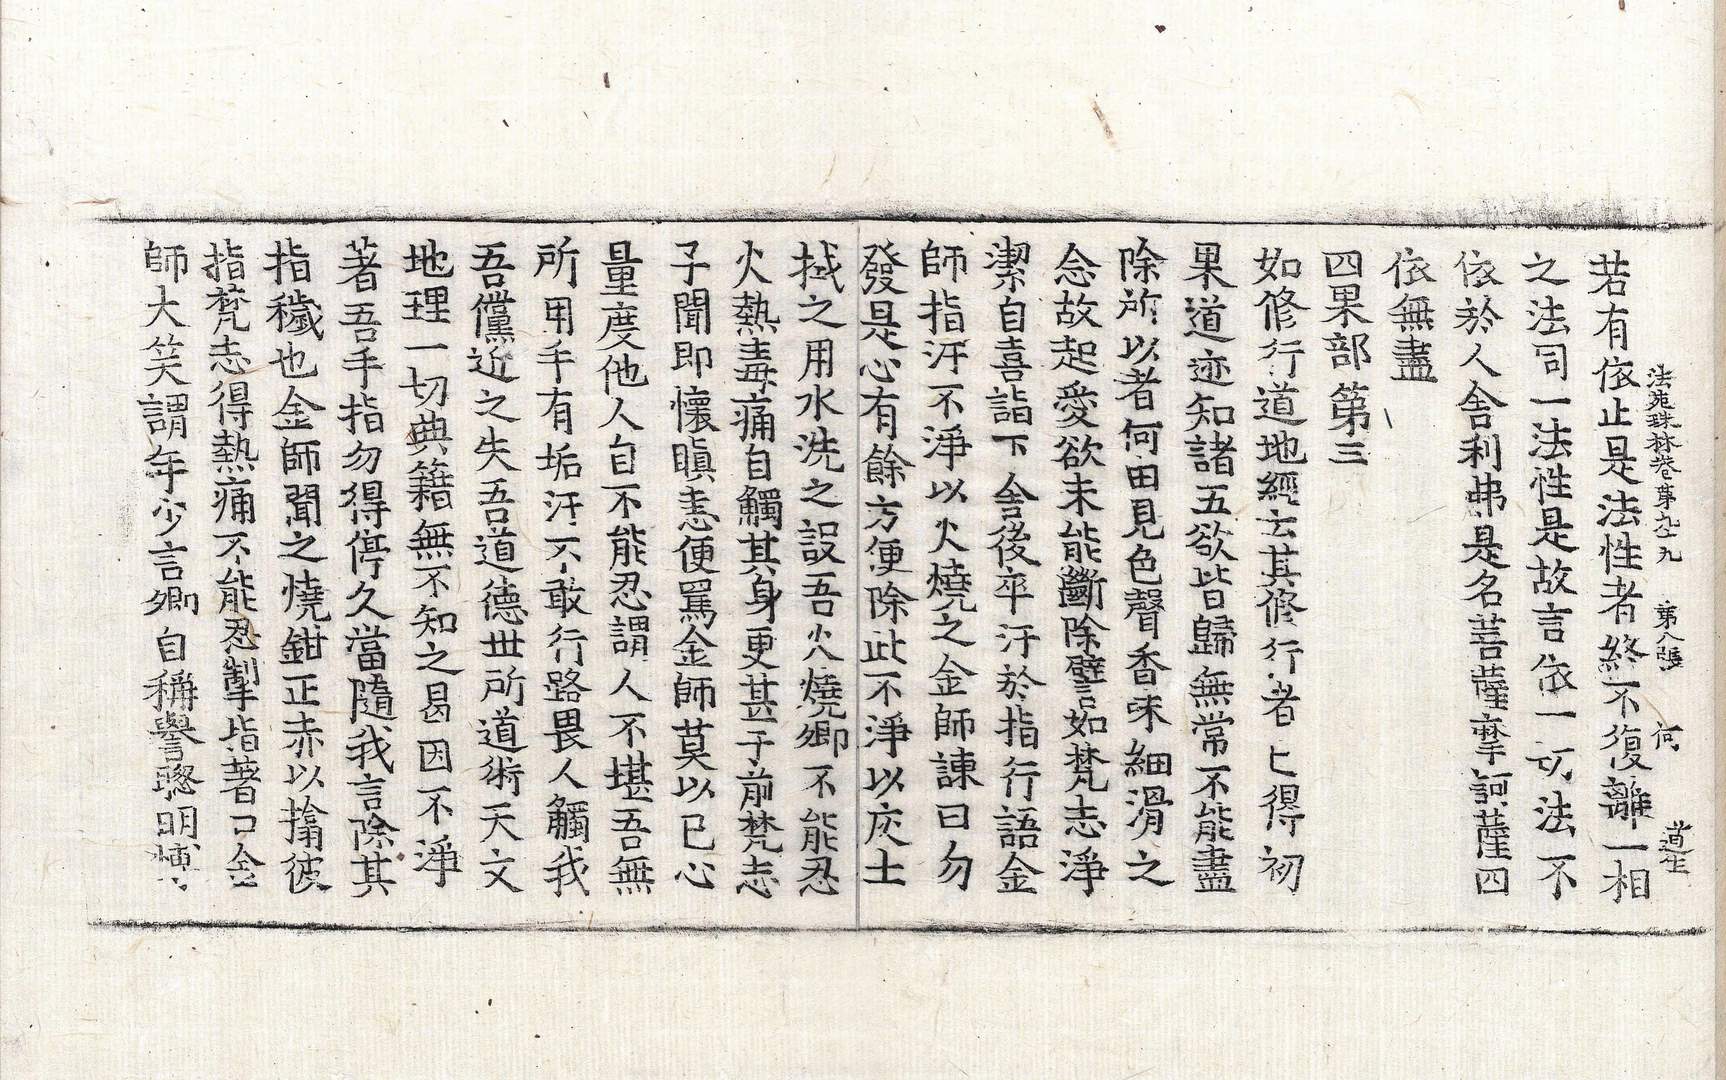 法苑珠林卷第九十九 第八張 何 道生
若有依止是法性者終不復離一相
之法同一法性是故言依一切法不
依於人舍利弗是名菩薩摩訶薩四
依無盡
四果部第三
如修行道地經云其修行者已得初
果道迹知諸五欲皆歸無常不能盡
除所以者何由見色聲香味細滑之
念故起愛欲未能斷除譬如梵志淨
潔自喜詣下舍後卒汙於指行語金
師指汙不淨以火燒之金師諫曰勿
發是心有餘方便除此不淨以灰土
拭之用水洗之設吾火燒卿不能忍
火熱毒痛自觸其身更甚于前梵志
子聞即懷瞋恚便罵金師莫以己心
量度他人自不能忍謂人不堪吾無
所用手有垢汙不敢行路畏人觸我
吾儻近之失吾道德世所道術天文
地理一切典籍無不知之曷因不淨
著吾手指勿得停久當隨我言除其
指穢也金師聞之燒鉗正赤以搚彼
指梵志得熱痛不能忍掣指著口金
師大笑謂年少言卿自稱譽聰明博